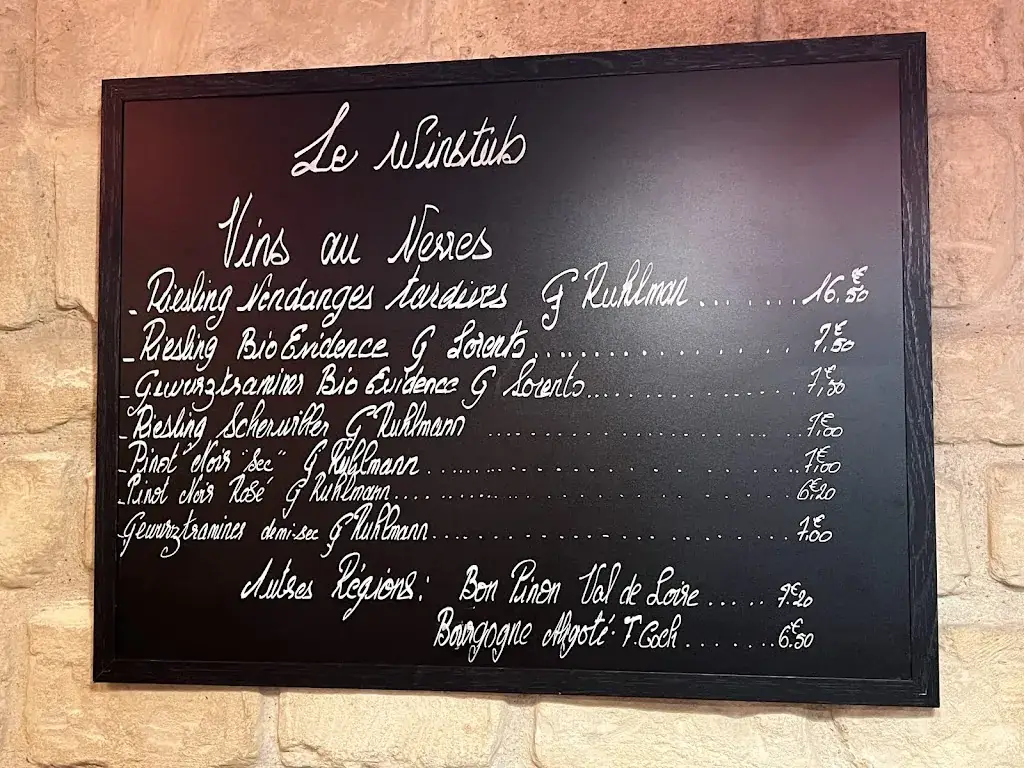 Le Winstub
Vins au Verres
- Riesling Vendanges tardives G Ruhlman ........ 16.€50
- Riesling Bio Evidence G Lorentz .................. 7,€50
- Gewurztraminer Bio Evidence G Lorentz .................. 7,€50
- Riesling Scherwiller G Ruhlmann .................. 7€00
- Pinot Noir "sec" G Ruhlmann .................. 7€00
- Pinot Noir Rosé G Ruhlmann .................. 6€20
- Gewurztraminer demi-sec G Ruhlmann .................. 7€00
Autres Régions : Bon Pinon Val de Loire ...... 7€20
Bourgogne Aligoté T. Coch ........ 6€50